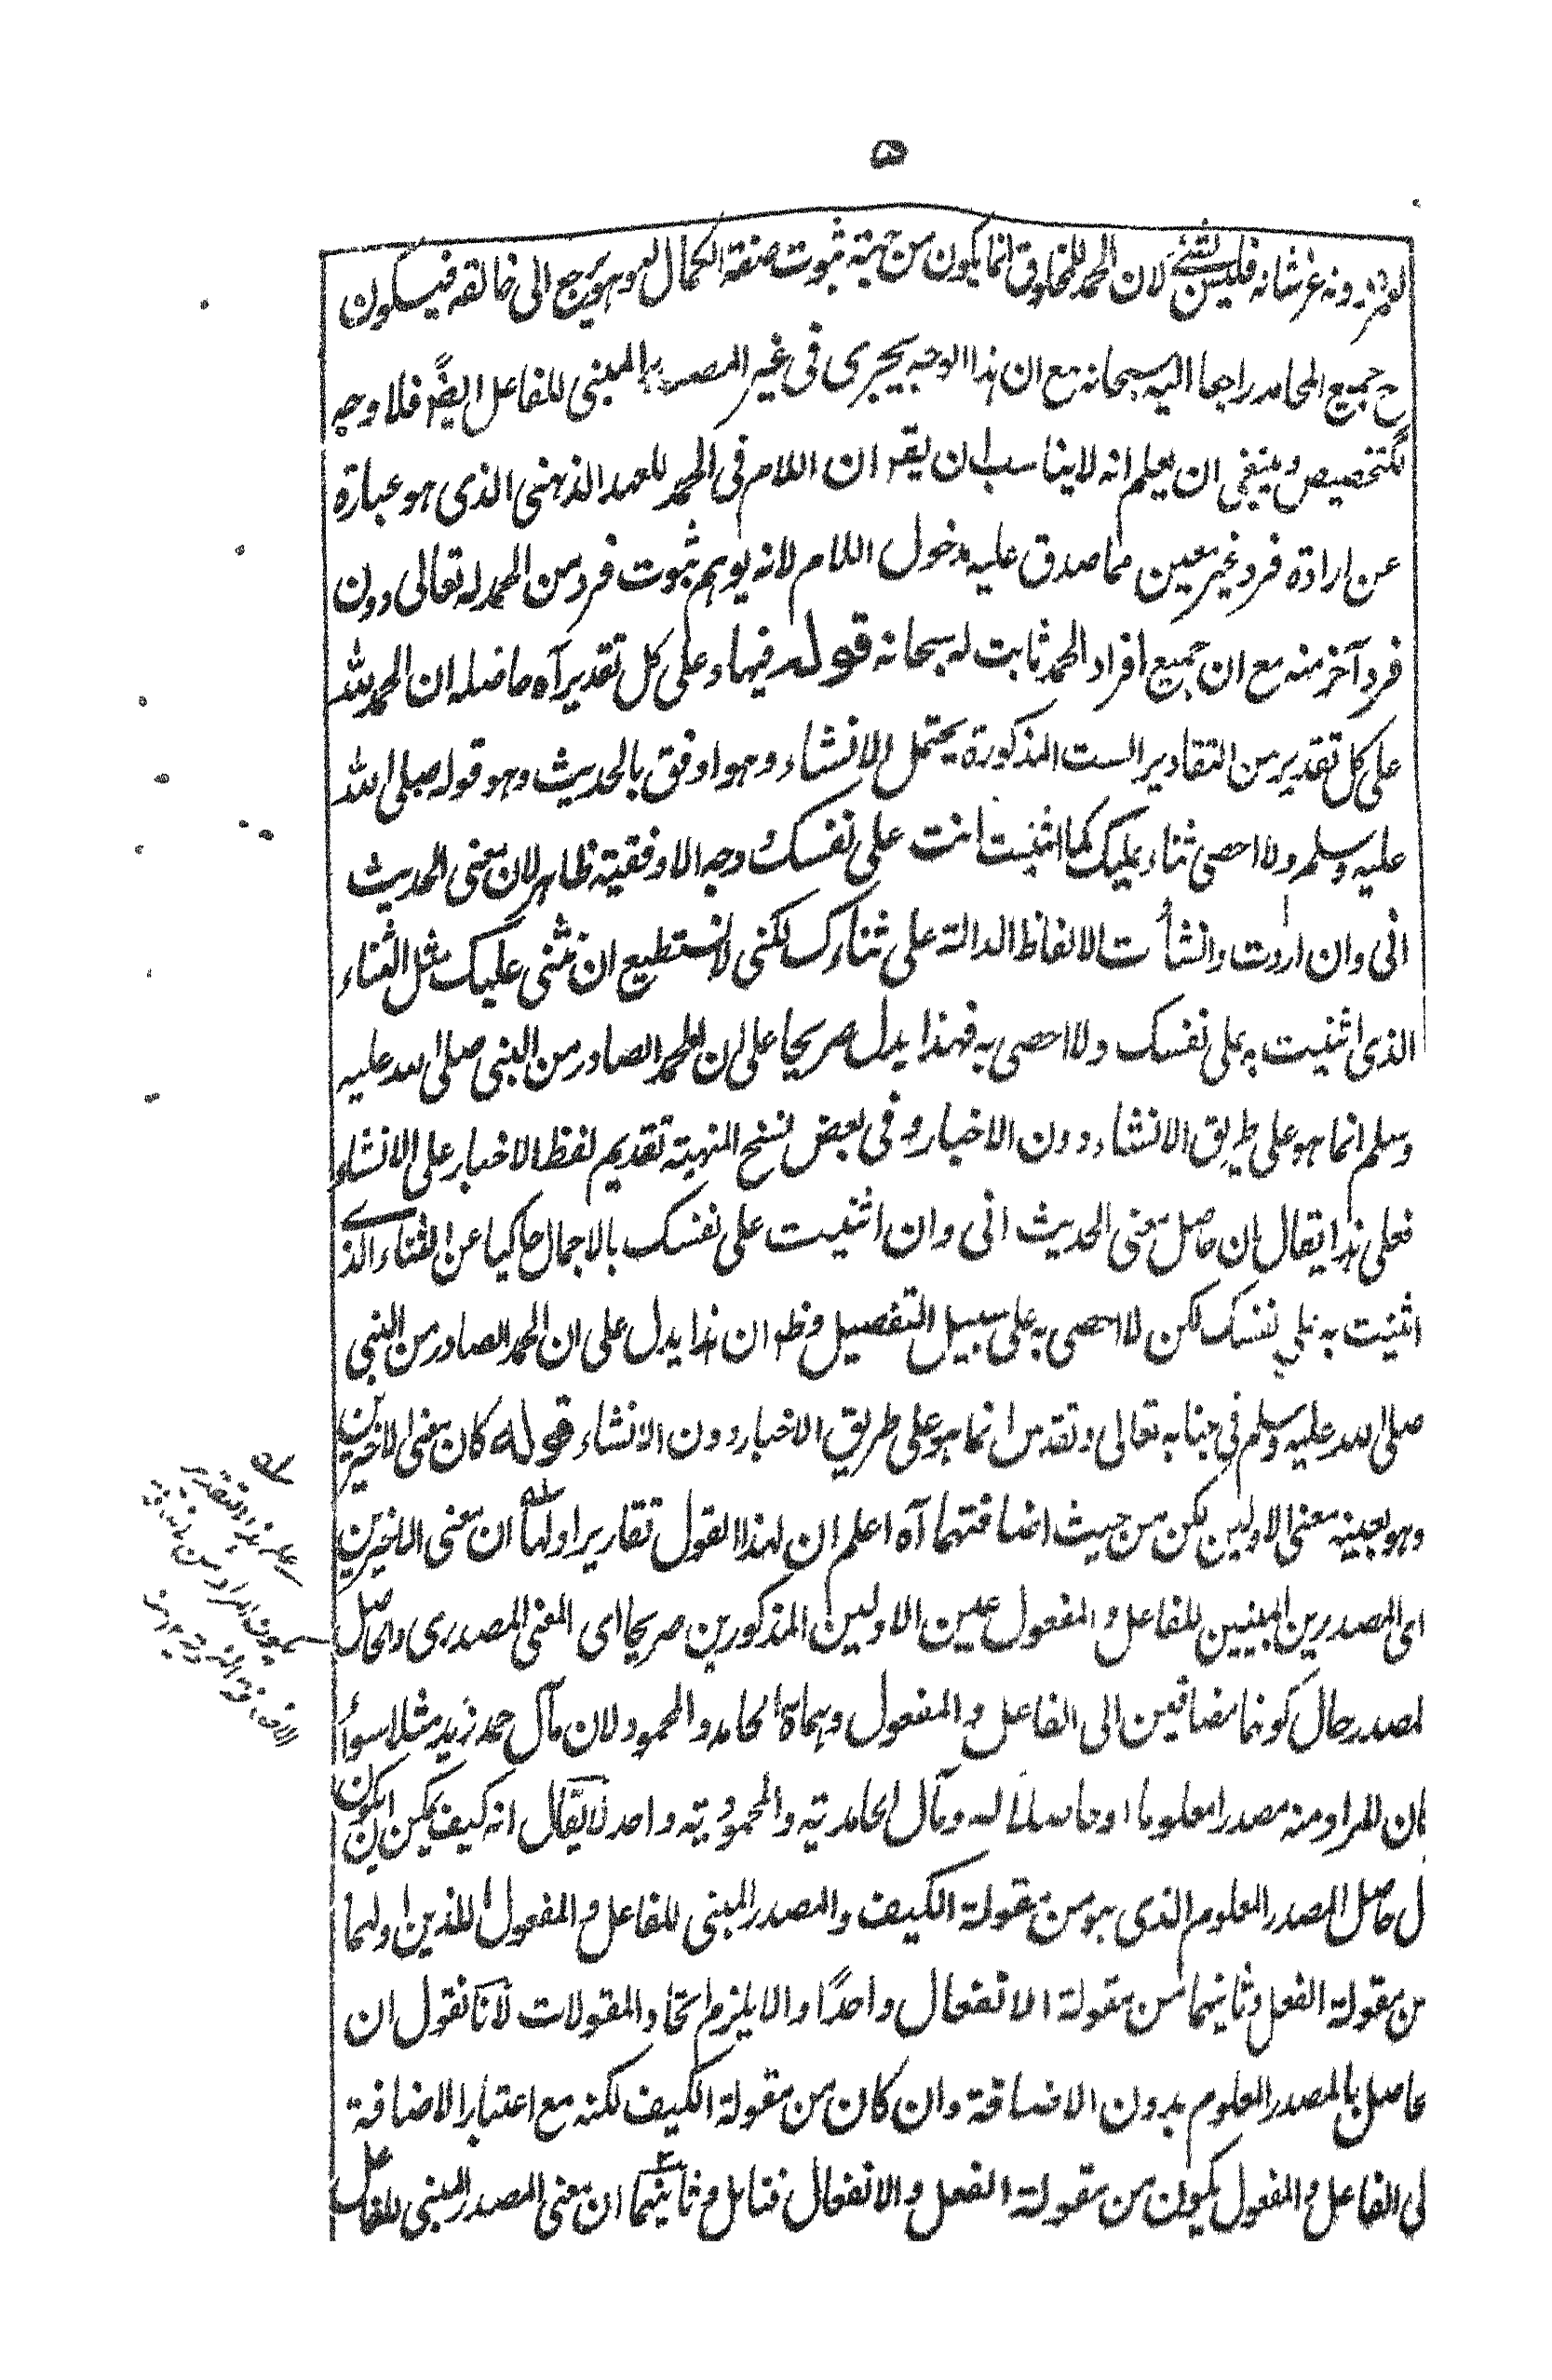 ۵
دونه عز شانه فليس بشئ لان الحمد للمخلوق انما يكون من حيث ثبوت صفة الكمال له وهو يرجع الى خالقه فيكون
ح جميع المحامد راجعا اليه سبحانه مع ان هذا الوجه يجرى فى غير المصدر المبنى للفاعل ايضًا فلا وجه
للتخصيص وينبغى ان يعلم انه لا يناسب ان يقر ان اللام فى الحمد للعهد الذهنى الذى هو عبارة
عن ارادة فرد غير معين مما صدق عليه مدخول اللام لانه يوهم ثبوت فرد من الحمد له تعالى دون
فرد آخر منه مع ان جميع افراد الحمد ثابت له سبحانه قوله فيها وعلى كل تقدير آه حاصله ان الحمد لله
على كل تقدير من التقادير الست المذكورة يحتمل الانشاء وهو اوفق بالحديث وهو قوله صلى الله
عليه وسلم ولا احصى ثناء عليك كما اثنيت انت على نفسك ووجه الاوفقية ظاهر لان معنى الحديث
انى وان اردت وانشأت الالفاظ الدالة على ثنائك لكنى لا نستطيع ان نثنى عليك مثل الثناء
الذى اثنيت به على نفسك ولا احصى به فهذا يدل صريحا على ان الحمد الصادر من النبى صلى الله عليه
وسلم انما هو على طريق الانشاء دون الاخبار وفى بعض نسخ المنهية تقديم لفظ الاخبار على الانشاء
فعلى هذا يقال ان حاصل معنى الحديث انى وان اثنيت على نفسك بالاجمال حاكيا عن الثناء الذى
اثنيت به على نفسك لكن لا احصى به على سبيل التفصيل وظ ان هذا يدل على ان الحمد الصادر من النبى
صلى الله عليه وسلم فى جنابه تعالى وتقدس انما هو على طريق الاخبار دون الانشاء قوله كان معنى الاخيرين
وهو بعينه معنى الاولين لكن من حيث اضافتهما آه اعلم ان لهذا القول تقارير اولها ان معنى الاخيرين
اى المصدرين المبنيين للفاعل والمفعول عين الاولين المذكورين صريحا اى المعنى المصدرى والحاصل
لمصدر حال كونهما مضافين الى الفاعل والمفعول وهما الحامد والمحمود لان مآل حمد زيد مثلا سواء
كان المراد منه مصدرا معلوما او حاصلا له ومآل الحامدية والمحمودية واحد لا يقال انه كيف يمكن ان يكون
ل حاصل المصدر المعلوم الذى هو من مقولة الكيف والمصدر المبنى للفاعل والمفعول اللذين اولهما
من مقولة الفعل وثانيهما من مقولة الانفعال واحدًا والا يلزم اتحاد المقولات لانا نقول ان
حاصل بالمصدر المعلوم بدون الاضافة وان كان من مقولة الكيف لكنه مع اعتبار الاضافة
لى الفاعل والمفعول يكون من مقولة الفعل والانفعال فتامل وثانيهما ان معنى المصدر المبنى للفاعل